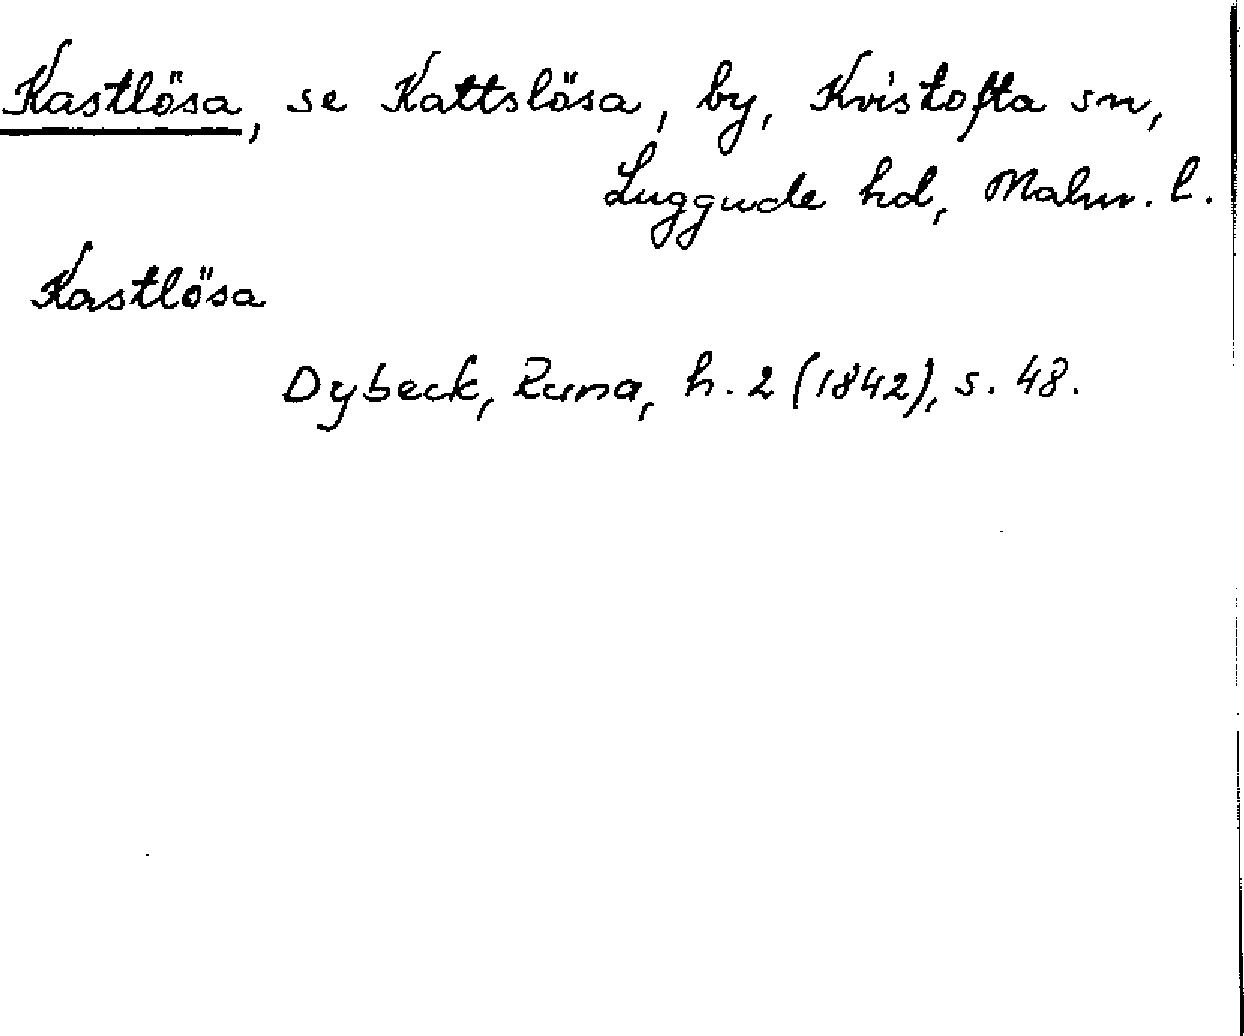 Kastlösa, se Kattslösa, by, Kvistofta sn,
Luggude hd, Malm. l.
Kastlösa
Dybeck, Runa, h. 2 (1842), s. 48.